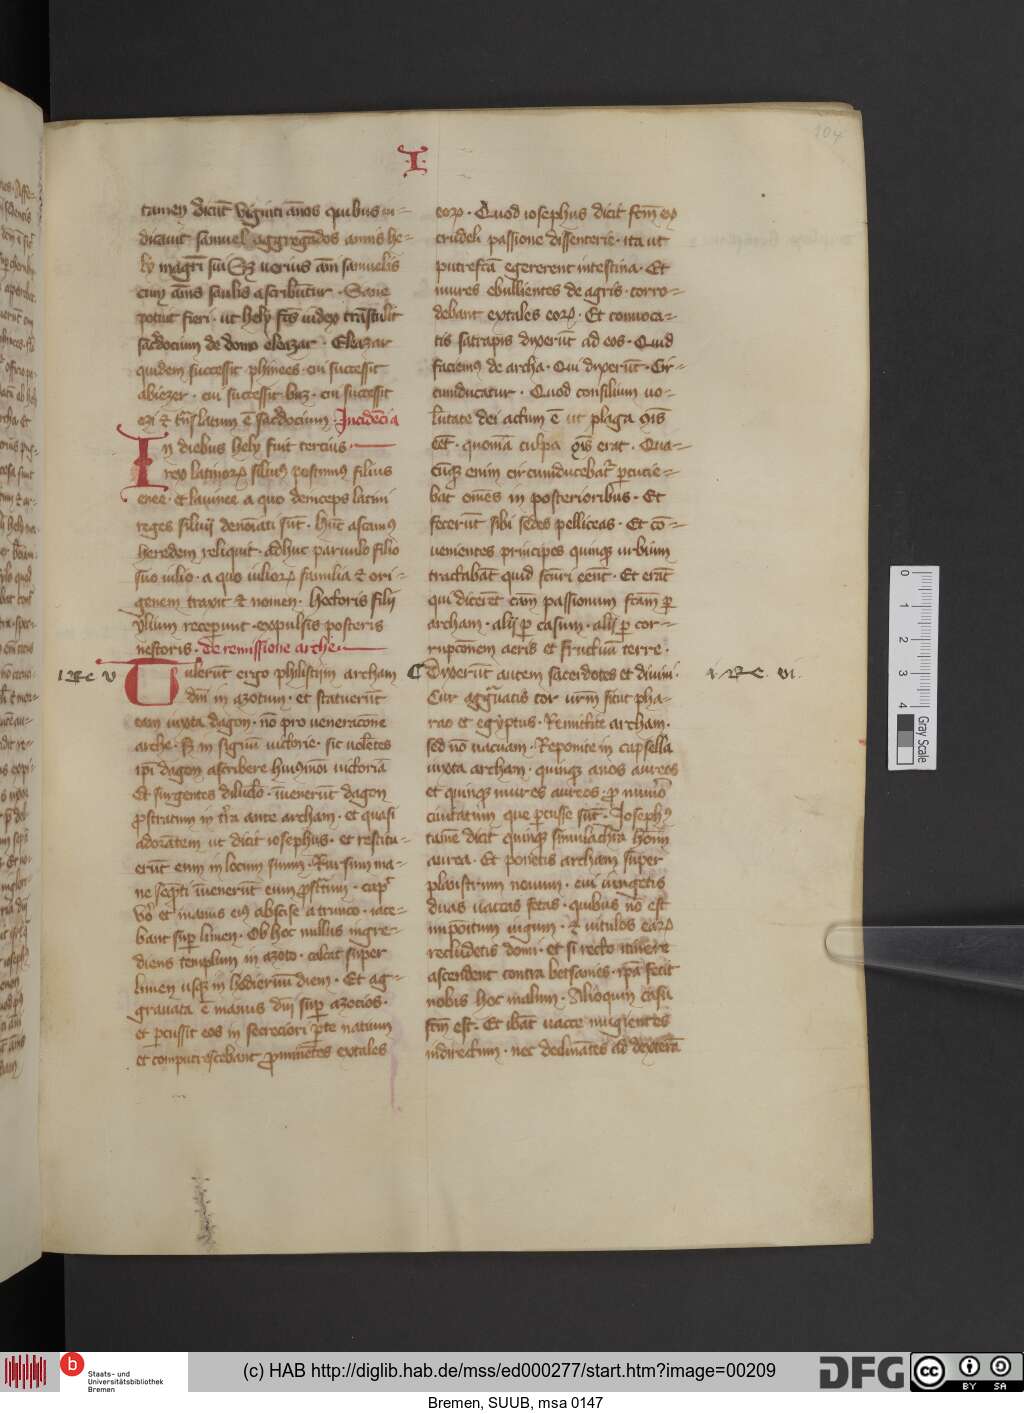 104
I
tamen dicūt viginti ānos quibus iu-
dicauit samuel aggregādos annis he-
ly mag̃ri sui Sꝫ uerius ām samuelis
cum ānis saulis ascribūtur · Sane
potuit fieri · ut hely
sac̄docium de domo eleazar · Eleazar
quidem successit phinees · cui successit
abiezer · cui successit buz · cui successit
ozi latum ē sac̄docium · Incidēcia
In diebus hely fuit tercius ·
rex latinoꝝ siluiꝰ postumꝰ filius
enee · et lauinee a quo deinceps latini
reges siluij denoīati sūt · hūc ascaniꝰ
heredem reliquit · adhuc paruulo filio
suo iulio · a quo iulioꝝ familia & ori-
genem traxit & nomen · hectoris filij
ylium receperunt · expulsis posteris
nestoris · de remissione arche ·
1 Re v
Tulerūt ergo philistijm archam
dn̄i in azotum · et statuerūt
eam iuxta dagon · nō pro ueneracōne
arche · sꝫ in signū uictorie · sic uolētes
ip̄i dagon ascribere huiꝰmōi uictoriā
Et surgentes diluclo · īuenerūt dagon
ꝓstratum in t̄ra ante archam · et quasi
adorātem ut dicit iosephus · et restitu-
erūt eum in locum suum · Rursum ma-
ne īuenerūt eum ꝓstātum · caput
vo et manus eiꝰ abscise a trunco · iace-
bant suꝑ limen · Ob hoc nullus ingre-
diens templum in azoto · calcat super
limen usqꝫ in hodiernū diem · Et ag-
grauata ē manus dn̄i suꝑ azocios ·
et ꝑcussit eos in secreciori ꝑte natium
et computrescebant ꝓminētes extales
eoꝝ · Quod iosephus dicit fcm̄ ex
crudeli passione dissenterie · ita ut
putrefcā egererent intestina · Et
mures ebullientes de agris · corro-
debant extales eoꝝ · Et conuoca-
tis satrapis dixerūt ad eos · Quid
faciemꝰ de archa · Qui dixerūt · Cir-
cumducatur · Quod consilium uo-
lūtate dei actum ē ut plaga oīs
eēt · quoniā culpa oīs erat · Qua-
cūqꝫ enim circumducebat̄ ꝑcucie-
bat omēs in posterioribus · Et
fecerūt sibi sedes pelliceas · Et cō-
uenientes principes quinqꝫ urbium
tractabāt quid fcūri eēnt · Et erāt
qui dicerēt eam passionum fcam ꝑ
archam · alij ꝑ casum · alij ꝑ cor-
rupcōnem aeris et fructuū terre ·
1 Re vi.
Dixerūt autem sacerdotes et diuini ·
Cur aggͣuatis cor urm̄ sicut pha-
rao et egyptus · Remittite archam ·
sed nō uacuam · Reponite in capsella
iuxta archam · quinqꝫ anos aureos
et quinqꝫ mures aureos · ꝓ numō
ciuitatum que ꝑcusse sūt · Josephꝰ
tamē dicit quinqꝫ simulachra hoīm
aurea · Et ponetis archam super
plaustrum nouum · cui iūngetis
duas uaccas fetas · quibus nō est
impoītum iugum · & uitulos eaꝝ
recludetis domi · et si recto itinere
ascendent contra betsames · ip̄a fecit
nobis hoc malum · Alioquin casu
fcm̄ est · Et ibāt uacce mugientes
indirectum · nec declinātes ad dexterā
0 1 2 3 4
Gray Scale
b Staats- und
Universitätsbibliothek
Bremen
(c) HAB http://diglib.hab.de/mss/ed000277/start.htm?image=00209
DFG
cc BY SA
Bremen, SUUB, msa 0147